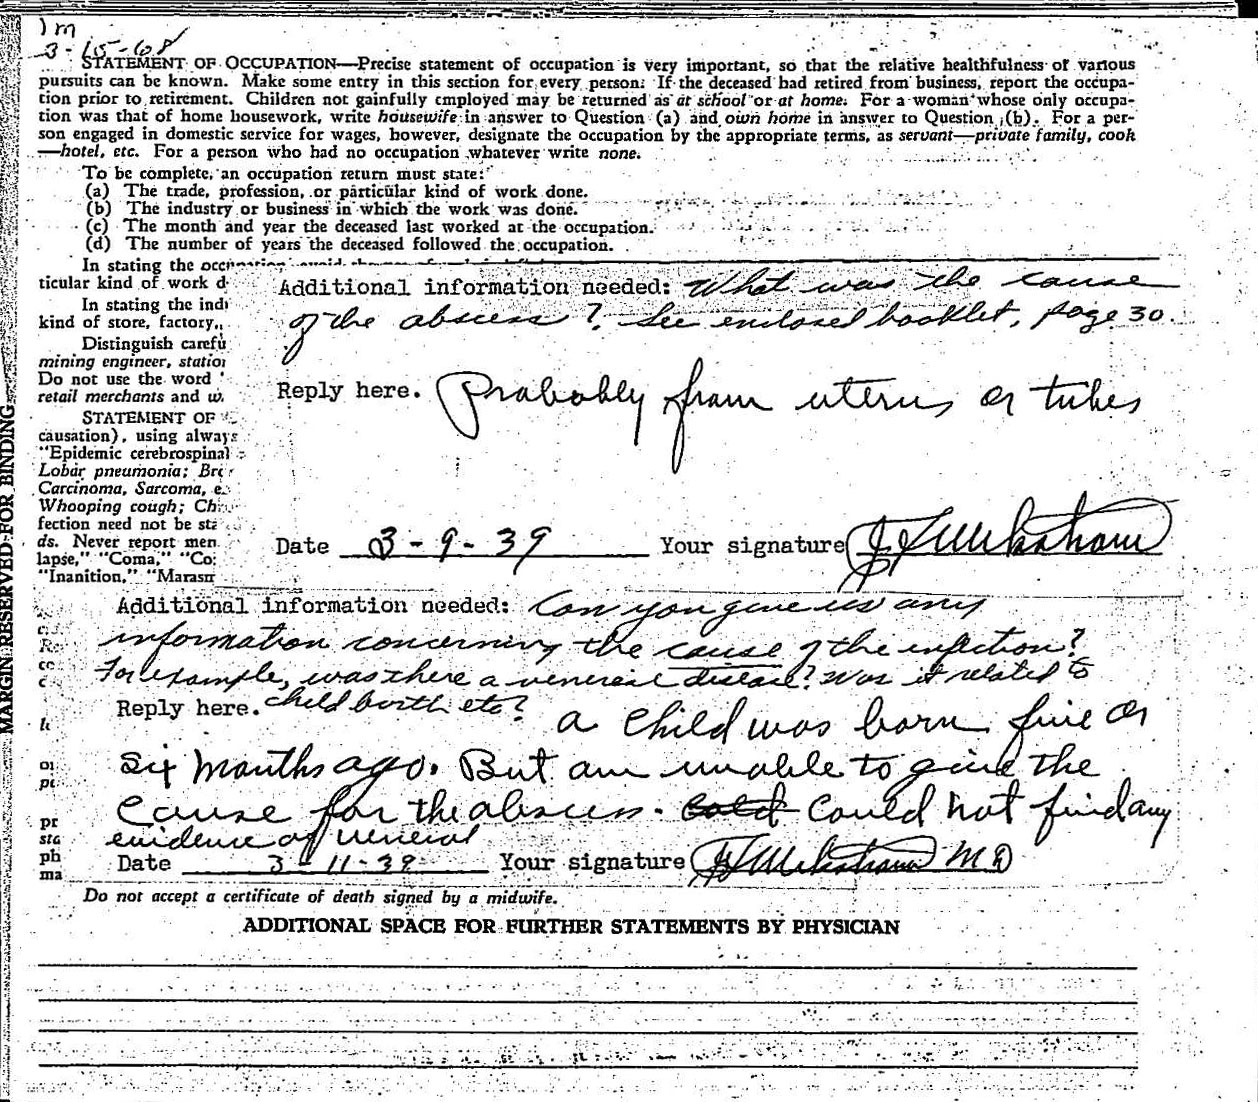 1m
3-15-68
STATEMENT OF OCCUPATION—Precise statement of occupation is very important, so that the relative healthfulness of various
pursuits can be known. Make some entry in this section for every person. If the deceased had retired from business, report the occupa-
tion prior to retirement. Children not gainfully employed may be returned as at school or at home. For a woman whose only occupa-
tion was that of home housework, write housewife in answer to Question (a) and own home in answer to Question (b). For a per-
son engaged in domestic service for wages, however, designate the occupation by the appropriate terms, as servant—private family, cook
—hotel, etc. For a person who had no occupation whatever write none.
To be complete, an occupation return must state:
(a) The trade, profession, or particular kind of work done.
(b) The industry or business in which the work was done.
(c) The month and year the deceased last worked at the occupation.
(d) The number of years the deceased followed the occupation.
In stating the occupation
ticular kind of work d
In stating the indu
kind of store, factory,
Distinguish carefu
mining engineer, station
Do not use the word
retail merchants and w
STATEMENT OF
causation), using always
"Epidemic cerebrospinal
Lobar pneumonia; Br
Carcinoma, Sarcoma, e
Whooping cough; Ch
fection need not be sta
ds. Never report mer
lapse," "Coma," "Co
"Inanition," "Marasm
Additional information needed: What was the cause
of the abscess? See enclosed booklet, page 30.
Reply here. Probably from uterus or tubes
Date 3-9-39 Your signature
MARGIN RESERVED FOR BINDING
Additional information needed: Can you give us any
information concerning the cause of the infection?
For example, was there a venereal disease? Was it related to
child birth etc?
Reply here. A child was born five or
six months ago. But am unable to give the
cause for the abscess. Could not find any
evidence of veneral
Date 3-11-39 Your signature M.D
pr
sta
ph
ma
Do not accept a certificate of death signed by a midwife.
ADDITIONAL SPACE FOR FURTHER STATEMENTS BY PHYSICIAN